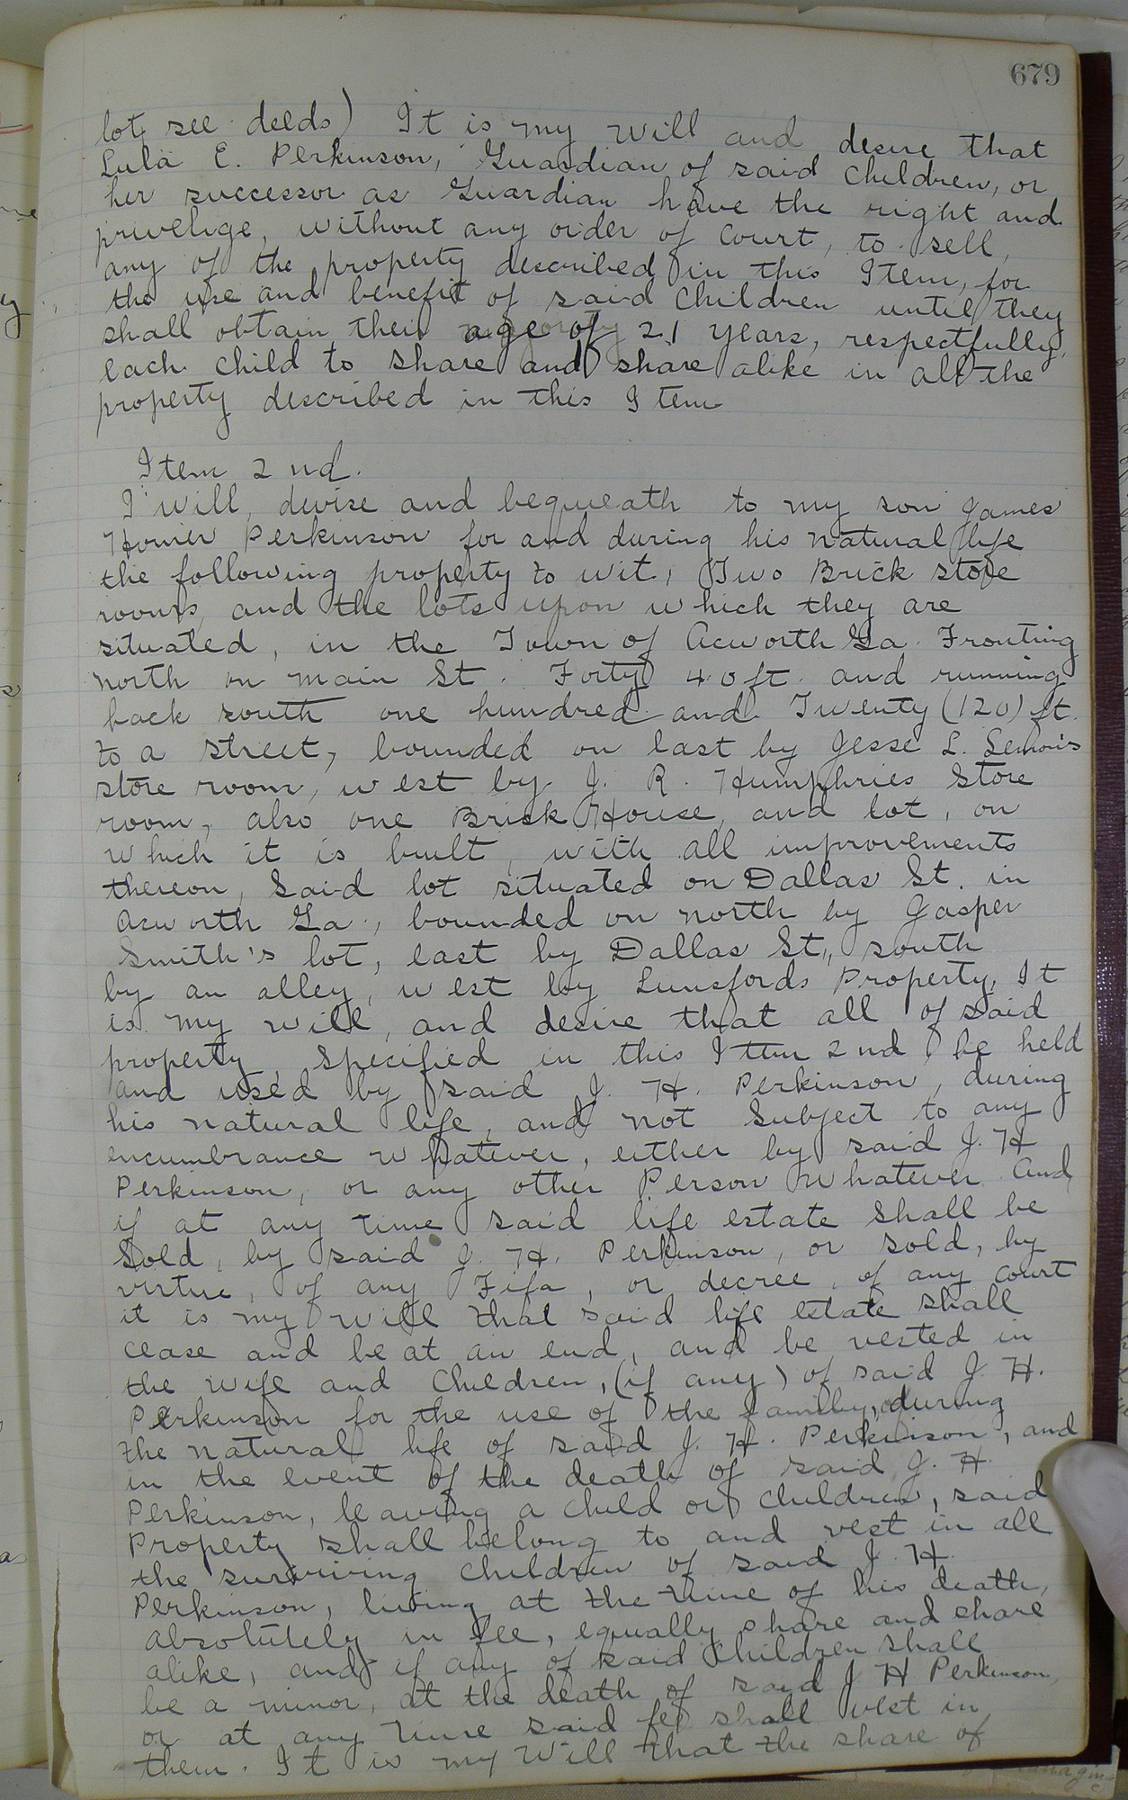 679
lot, see deeds) It is my will and desire that
Lula E. Perkinson, Guardian of said children, or
her successor as Guardian have the right and
privelige, without any order of Court, to sell
any of the property described in this Item, for
the use and benefit of said Children until they
shall obtain their age of 21 years, respectfully,
each child to share and share alike in all the
property described in this Item
Item 2nd.
I will, devise and bequeath to my son James
Homer Perkinson for and during his natural life
the following property to wit, Two Brick store
rooms, and the lots upon which they are
situated, in the Town of Acworth Ga. Fronting
north on main St. Forty 40 ft. and running
back south one hundred and Twenty (120) ft.
to a street, bounded on east by Jesse L. Lemon's
store room, west by J. R. Humphries Store
room, also one Brick House, and lot, on
which it is built, with all improvements
thereon, Said lot situated on Dallas St. in
Acworth Ga., bounded on north by Gasper
Smith's lot, east by Dallas St., south
by an alley, west by Lunsfords Property, It
is my will, and desire that all of said
property, specified in this Item 2nd, be held
and used by said J. H. Perkinson, during
his natural life, and not Subject to any
encumbrance whatever, either by said J. H
Perkinson, or any other Person whatever. And
if at any time said life estate shall be
Sold, by said J. H. Perkinson, or sold, by
virtue, of any Fifa, or decree, of any court
it is my will that said life estate shall
cease and be at an end, and be vested in
the wife and Children, (if any) of said J. H.
Perkinson for the use of the family, during
the natural life of said J. H. Perkinson, and
in the event of the death of said J. H.
Perkinson, leaving a child or children, said
Property shall belong to and vest in all
the surviving children of said J. H.
Perkinson, living at the time of his death,
absolutely in fee, equally share and share
alike, and if any of said Children shall
be a minor, at the death of said J H Perkinson,
or at any time said fee shall vest in
them. It is my Will that the share of